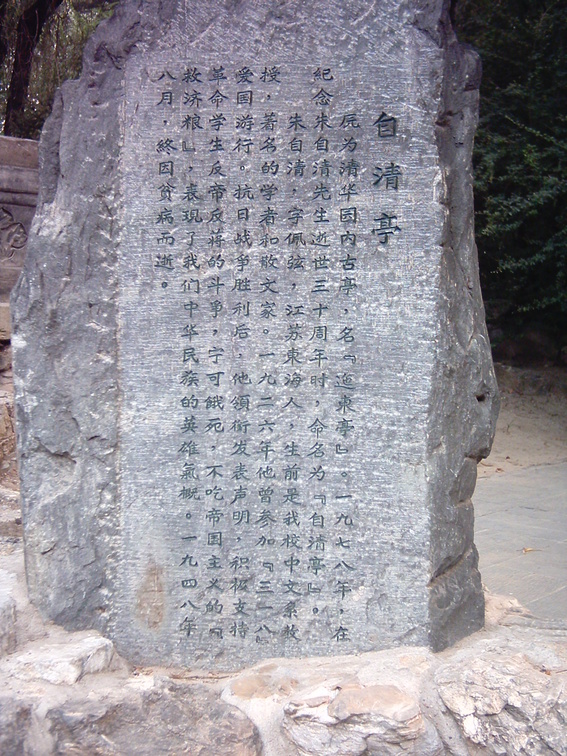 自清亭
原为清华园内古亭，名『迤東亭』。一九七八年，在
紀念朱自清先生逝世三十周年时，命名为『自清亭』。
朱自清，字佩弦，江苏東海人，生前是我校中文系教
授，著名的学者和散文家。一九二六年他曾参加『三一八』
爱国游行。抗日战争胜利后，他領衔发表声明，积极支持
革命学生反帝反蒋的斗争，宁可餓死，不吃帝国主义的『
救济粮』，表现了我们中华民族的英雄氣概。一九四八年
八月，終因貧病而逝。